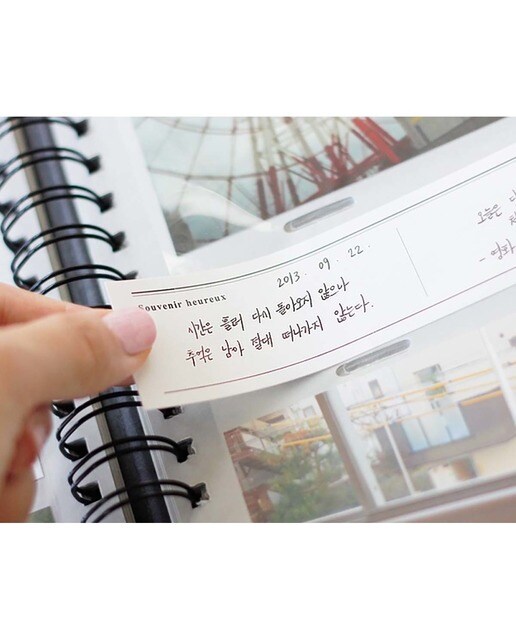 Souvenir heureux
2013. 09. 22.
시간은 흘러 다시 돌아오지 않으나
추억은 남아 절대 떠나가지 않는다.
오늘은
- 영화